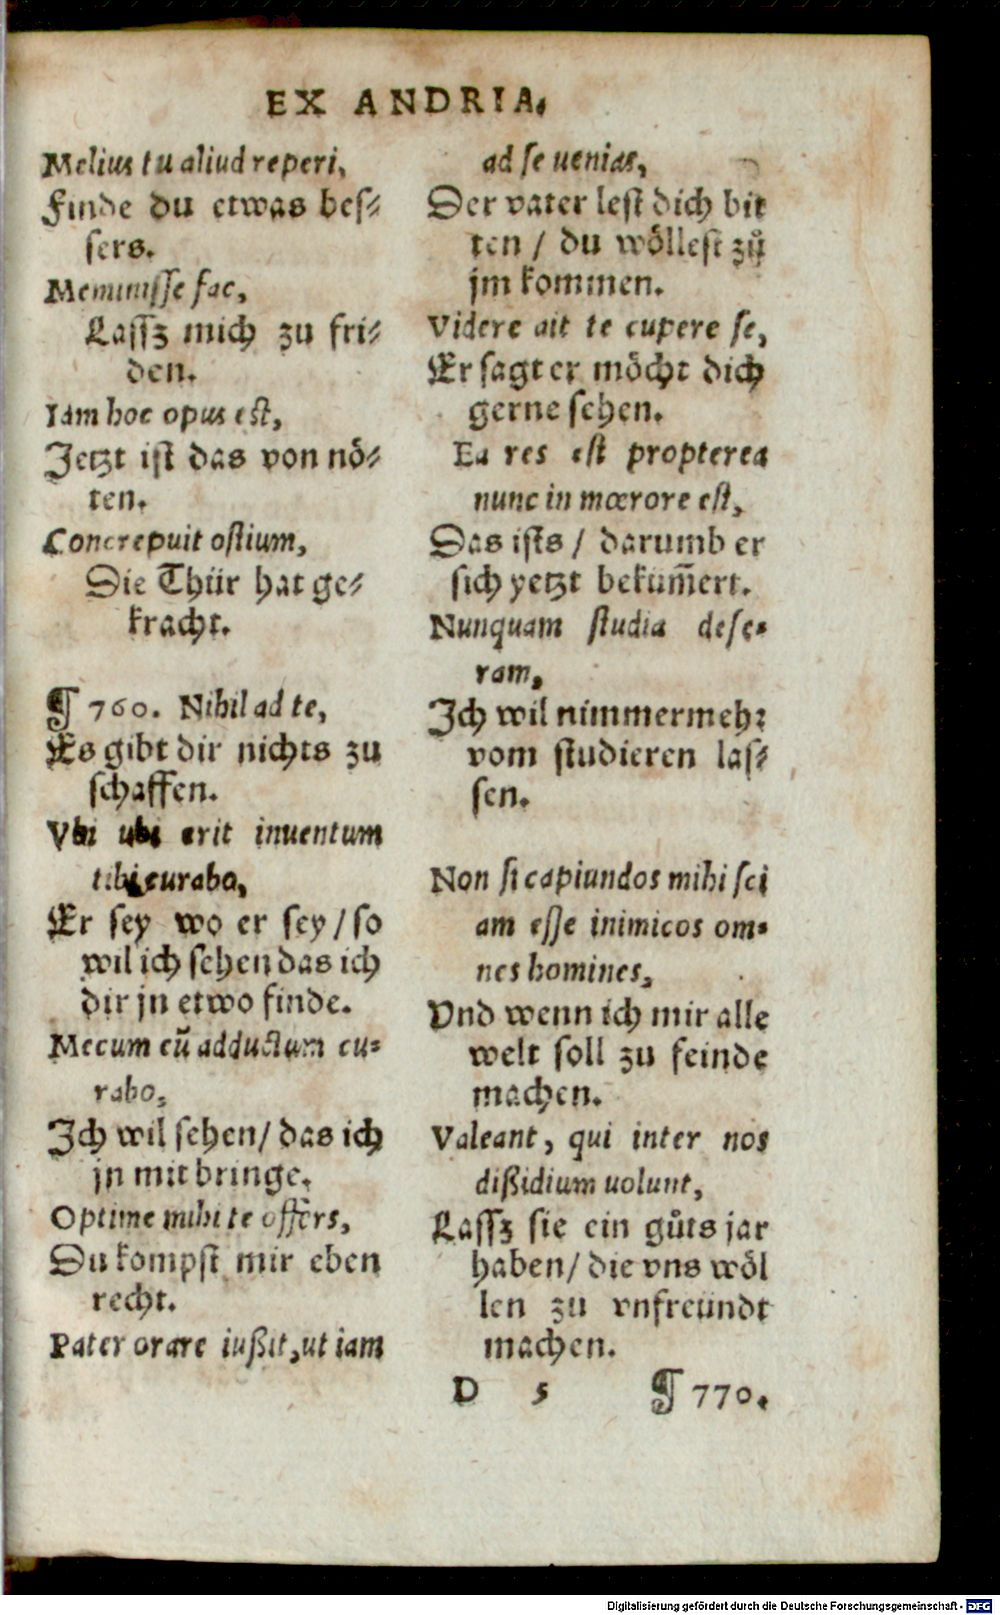 EX ANDRIA.
Melius tu aliud reperi,
Finde du etwas bes⸗
sers.
Meminisse fac,
Lassz mich zu fri⸗
den.
Iam hoc opus est,
Jetzt ist das von nö⸗
ten.
Concrepuit ostium,
Die Thür hat ge⸗
kracht.
¶ 760. Nihil ad te,
Es gibt dir nichts zu
schaffen.
Vbi ubi erit inuentum
tibi curabo,
Er sey wo er sey / so
wil ich sehen das ich
dir jn etwo finde.
Mecum eũ adductum cu⸗
rabo,
Ich wil sehen / das ich
jn mit bringe.
Optime mihi te offers,
Du kompst mir eben
recht.
Pater orare iußit, ut iam
ad se uenias,
Der vater lest dich bit
ten / du wöllest zů
jm kommen.
Videre ait te cupere se,
Er sagt er möcht dich
gerne sehen.
Ea res est propterea
nunc in mœrore est,
Das ists / darumb er
sich yetzt beküm̃ert.
Nunquam studia dese⸗
ram,
Ich wil nimmermehr
vom studieren las⸗
sen.
Non si capiundos mihi sci
am esse inimicos om⸗
nes homines,
Vnd wenn ich mir alle
welt soll zu feinde
machen.
Valeant, qui inter nos
dißidium uolunt,
Lassz sie ein gůts jar
haben / die vns wöl
len zu vnfreundt
machen.
D 5 ¶ 770.
Digitalisierung gefördert durch die Deutsche Forschungsgemeinschaft - DFG